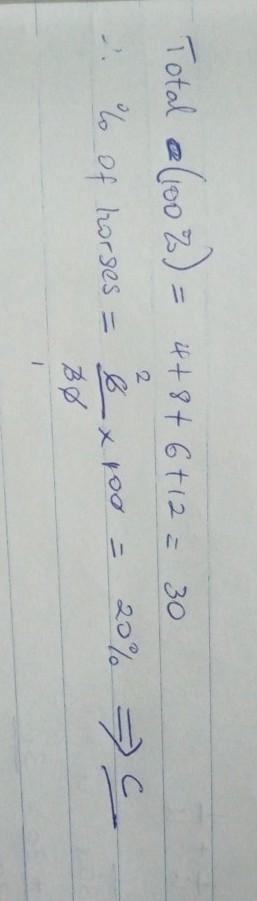 Total (100%) = 4+8+6+12 = 30
∴ % of horses = 6/30 × 100 = 20% ⇒ C
2
1